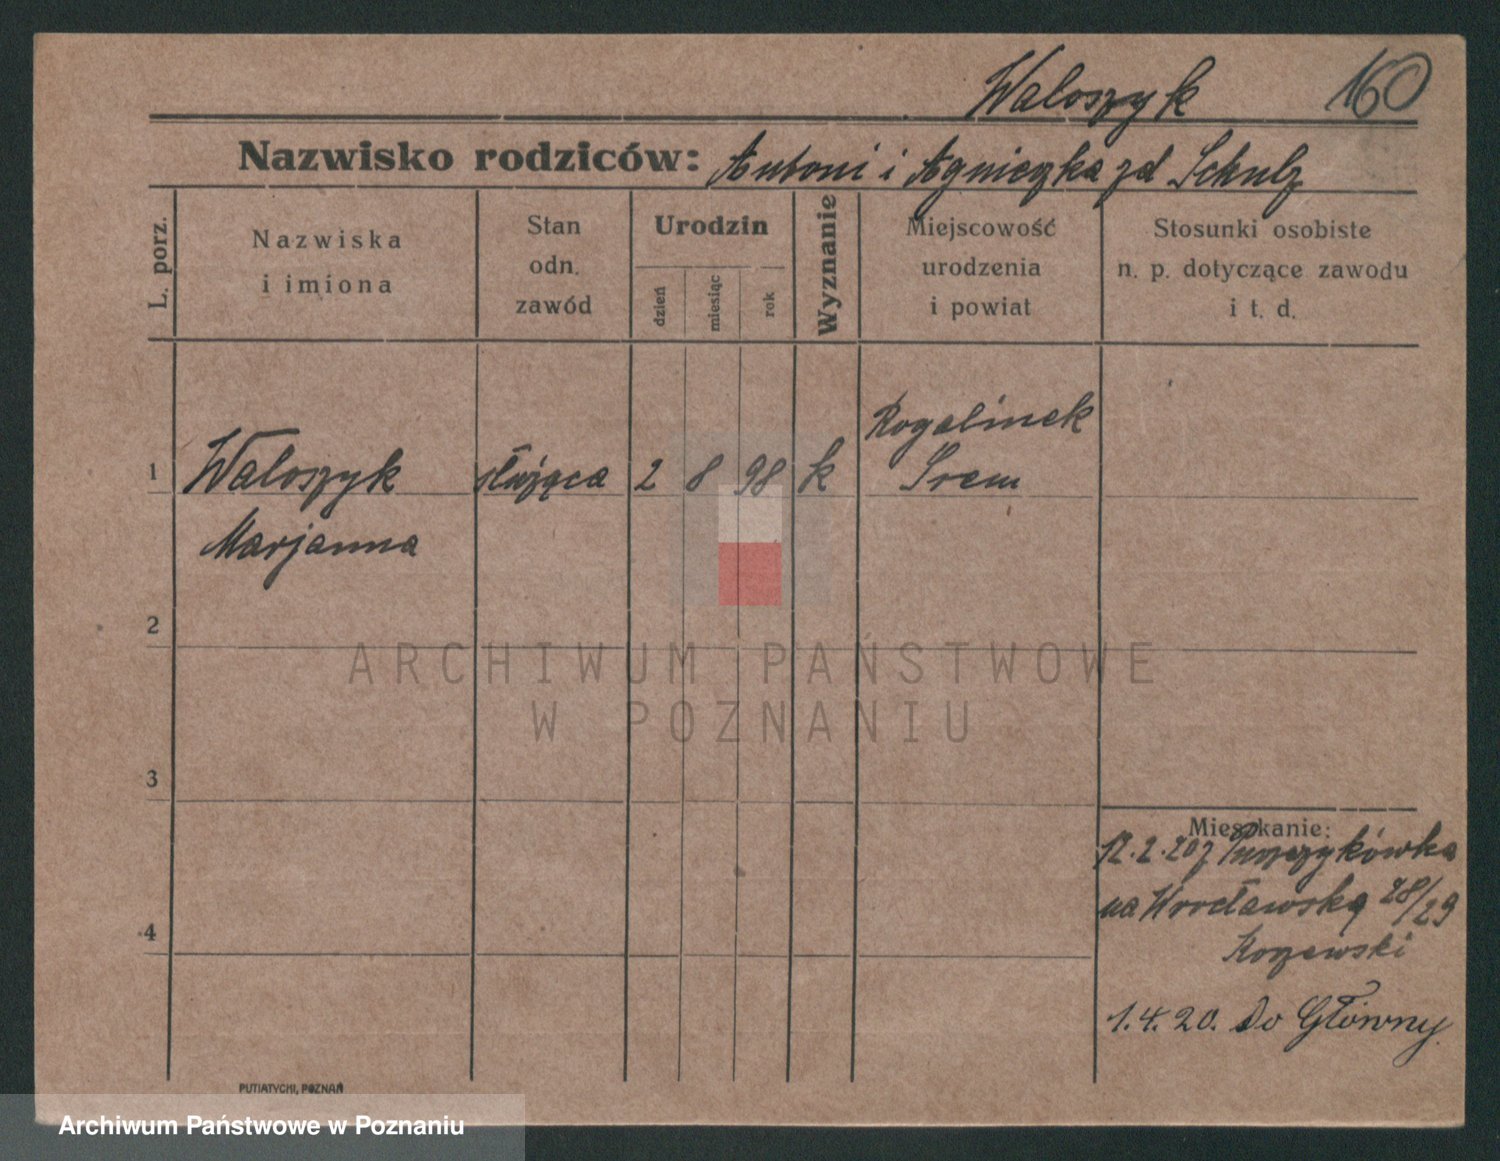 Waloszyk 160
Nazwisko rodziców: Antoni i Agnieszka zd Schulz
L. porz.
Nazwiska
i imiona
Stan
odn.
zawód
Urodzin
dzień
miesiąc
rok
Wyznanie
Miejscowość
urodzenia
i powiat
Stosunki osobiste
n. p. dotyczące zawodu
i t. d.
1 Waloszyk służąca 2 8 98 k Rogalinek
Śrem
Marjanna
2
ARCHIWUM PAŃSTWOWE
W POZNANIU
3
4
Mieszkanie:
12.2.20 z
na Wrocławską 28/29
1.4.20. Do Główny
PUTIATYCKI, POZNAŃ
Archiwum Państwowe w Poznaniu